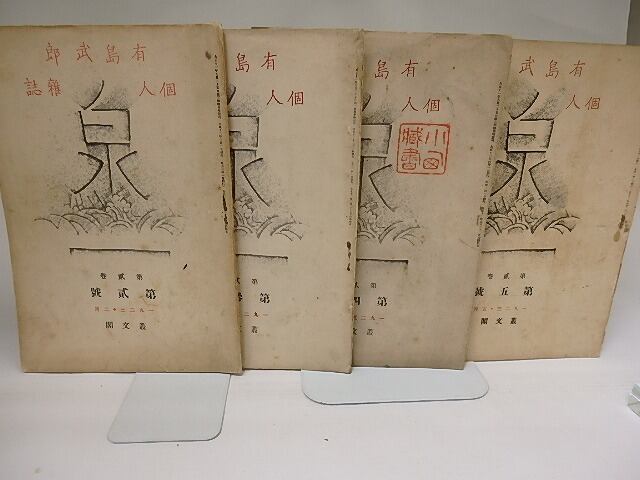 有島武郎
個人雜誌
泉
第貳卷
第貳號
一九二三・二月
叢文閣
有島
個人
第
叢文
有島
個人
藏書
第貳
第四
叢文
有島武
個人
泉
第貳卷
第五號
一九二三・五月
叢文閣